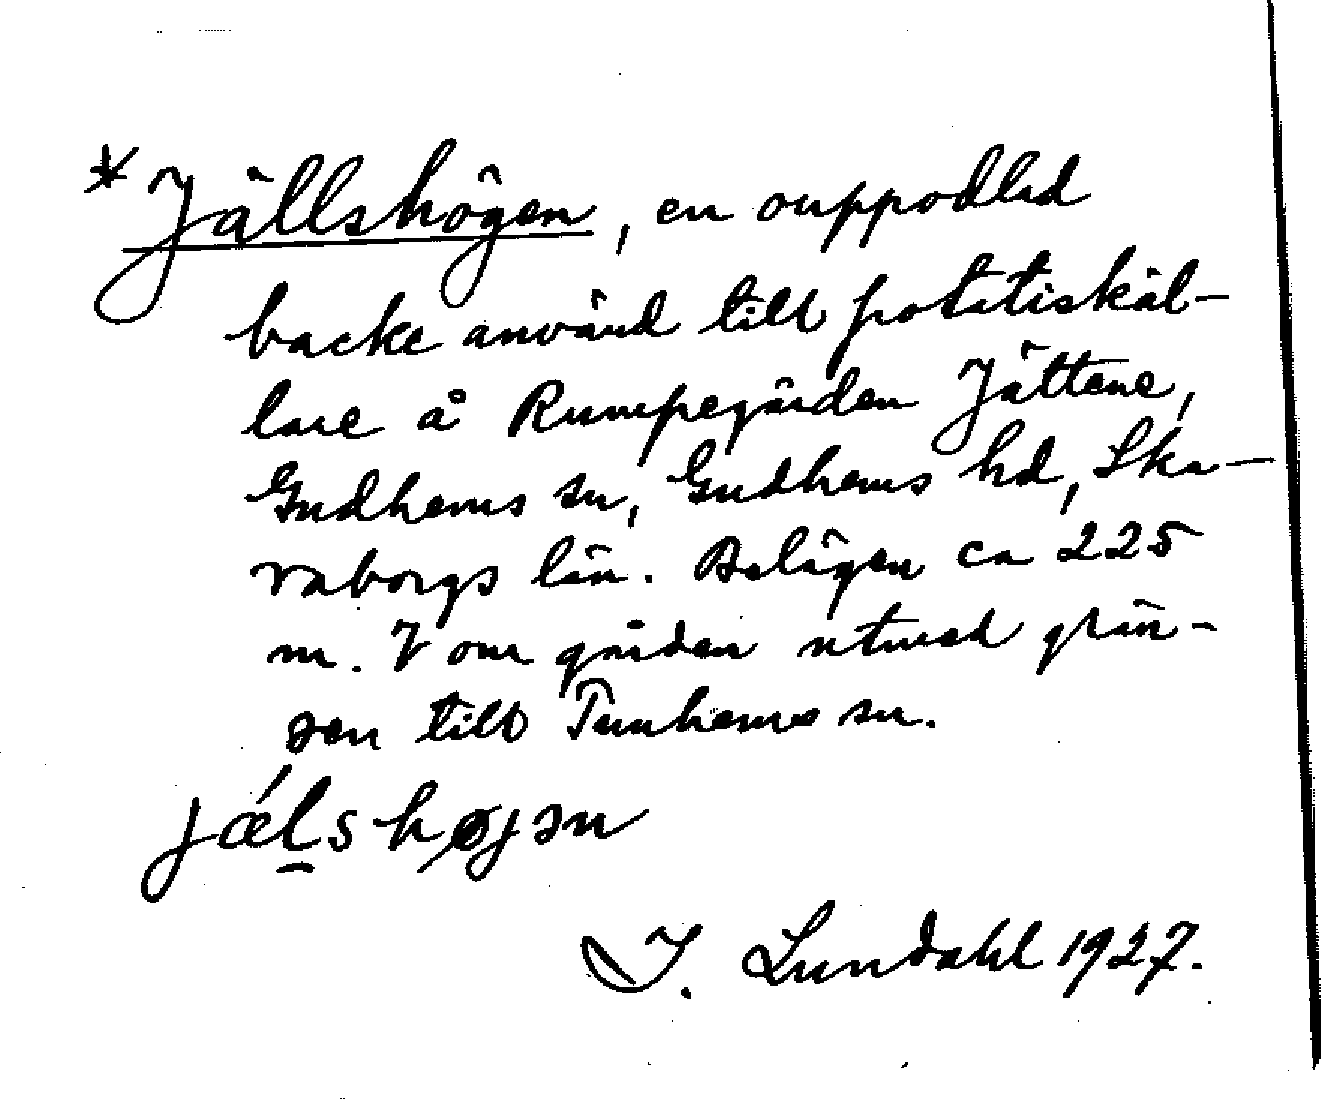 * Jällshögen, en ouppodlad
backe använd till potatiskäl-
lare å Rumpegården Jättene,
Gudhems sn, Gudhems hd, Ska-
raborgs län. Belägen ca 225
m. V om gården utmed grän-
sen till Tunhems sn.
jǽlshøjən
I. Lundahl 1927.